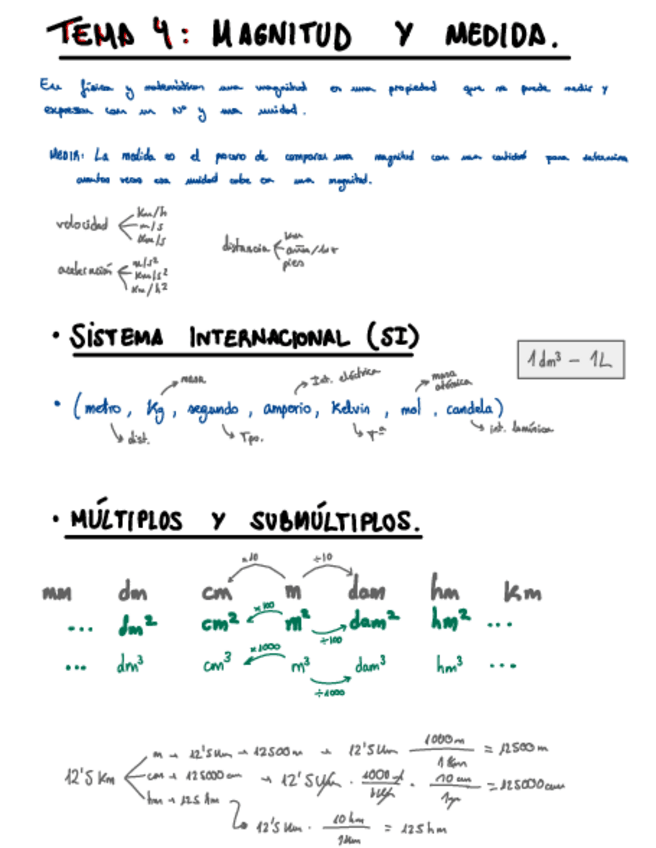 TEMA 4: MAGNITUD Y MEDIDA.
En física y matemáticas una magnitud es una propiedad que se puede medir y
expresar con un Nº y una unidad.
MEDIR: La medida es el proceso de comparar una magnitud con una cantidad para determina
cuantas veces esa unidad cabe en una magnitud.
velocidad Km/h
m/s
Km/s
distancia Km
años/luz
pies
aceleración m/s²
Km/s²
Km/h²
• SISTEMA INTERNACIONAL (SI)
1dm³ – 1L
masa Int. eléctrica masa atómica
• (metro, Kg, segundo, amperio, Kelvin, mol, candela)
dist. Tpo. Tª int. lumínica
• MÚLTIPLOS Y SUBMÚLTIPLOS.
×10 ÷10
mm dm cm m dam hm Km
... dm² cm² ×100 m² ÷100 dam² hm² ...
... dm³ cm³ ×1000 m³ ÷1000 dam³ hm³ ...
12'5 Km
m → 12'5 Km → 12500 m → 12'5 Km 1000 m / 1 Km = 12500 m
cm → 125000 cm → 12'5 Km · 1000 / 1 Km · 10 cm / 1 = 125000 cm
hm → 125 hm
12'5 Km · 10 hm / 1 Km = 125 hm